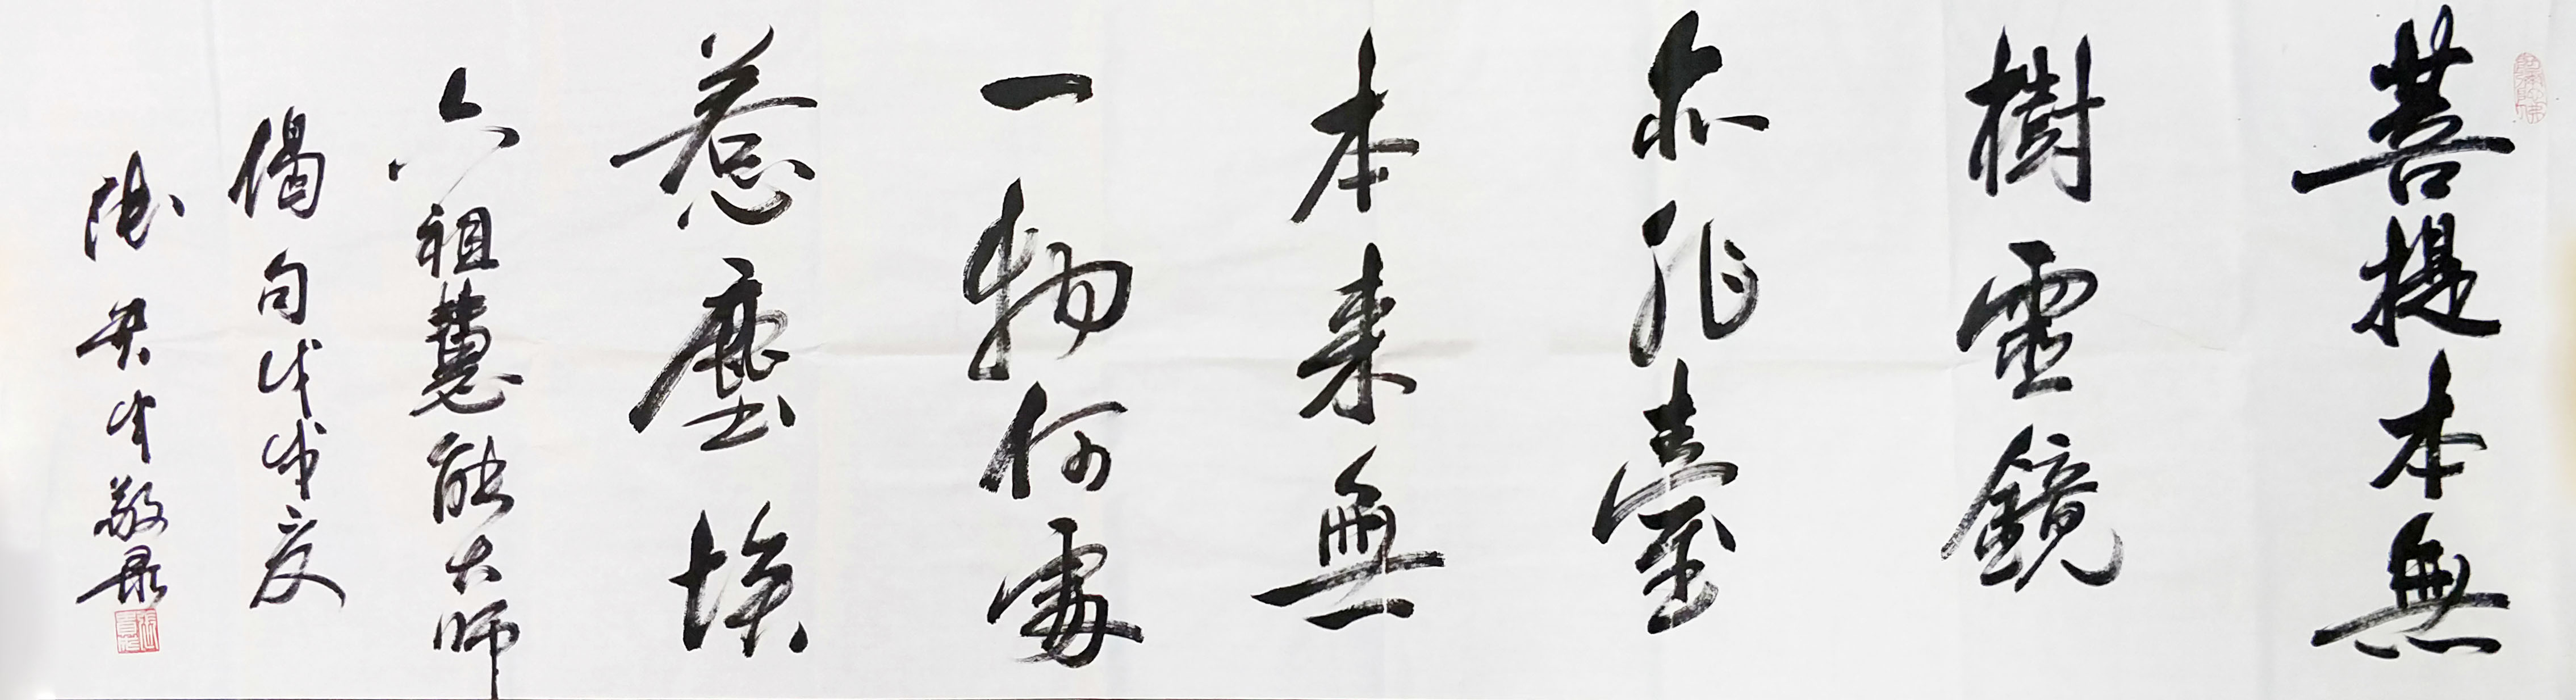 菩提本無
樹靈鏡
亦非臺
本来無
一物何處
惹塵埃
六祖慧能大師
偈句戊戌夏
敬录